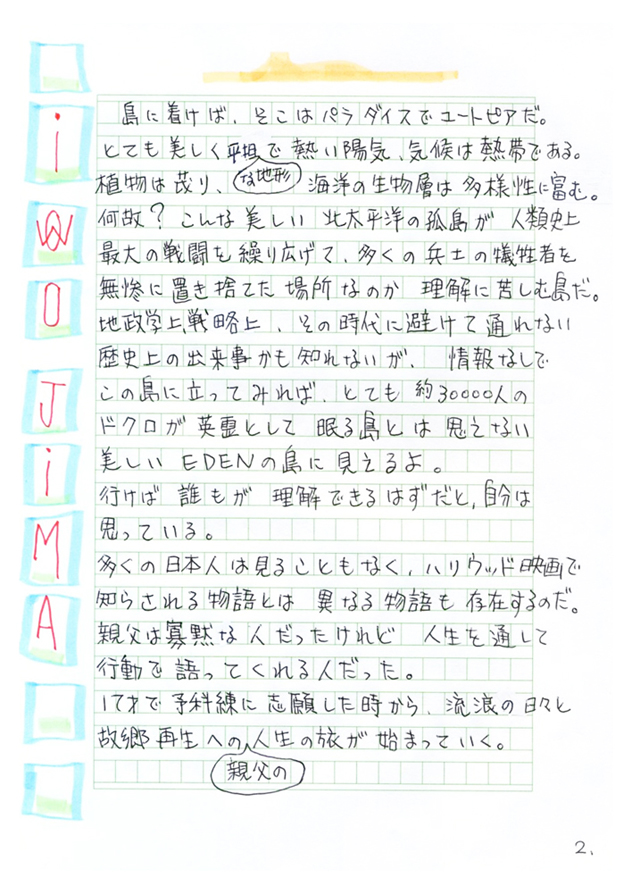 i
W
O
J
i
M
A
島に着けば、そこはパラダイスでユートピアだ。
とても美しく平坦で熱い陽気、気候は熱帯である。
な地形
植物は茂り、海洋の生物層は多様性に富む。
何故?こんな美しい 北太平洋の孤島が 人類史上
最大の戦闘を繰り広げて、多くの兵士の犠牲者を
無惨に置き捨てた場所なのか 理解に苦しむ島だ。
地政学上、戦略上、その時代に避けて通れない
歴史上の出来事かも知れないが、 情報なしで
この島に立ってみれば、とても 約30000人の
ドクロが英霊として 眠る島とは 思えない
美しい EDENの島に見えるよ。
行けば 誰もが 理解できるはずだと、自分は
思っている。
多くの日本人は見ることもなく、ハリウッド映画で
知らされる物語とは 異なる物語も 存在するのだ。
親父は寡黙な人だったけれど 人生を通して
行動で語ってくれる人だった。
17才で予科練に志願した時から、流浪の日々と
故郷再生への人生の旅が 始まっていく。
親父の
2.